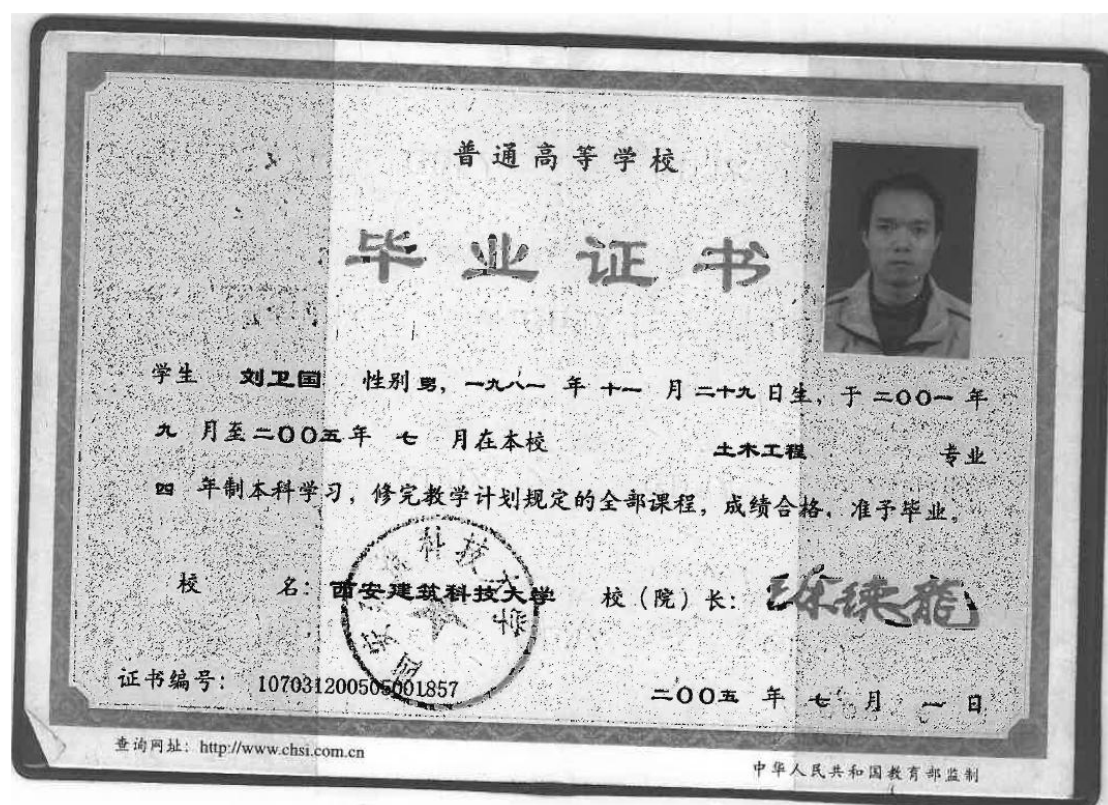 普通高等学校
毕业证书
学生 刘卫国 性别 男，一九八一 年 十一 月 二十九 日生，于 二〇〇一 年
九 月至 二〇〇五 年 七 月在本校 土木工程 专业
四 年制本科学习，修完教学计划规定的全部课程，成绩合格，准予毕业。
校 名：西安建筑科技大学 校（院）长：徐德龙
证书编号： 107031200505001857 二〇〇五 年 七 月 一 日
查询网址：http://www.chsi.com.cn
中华人民共和国教育部监制